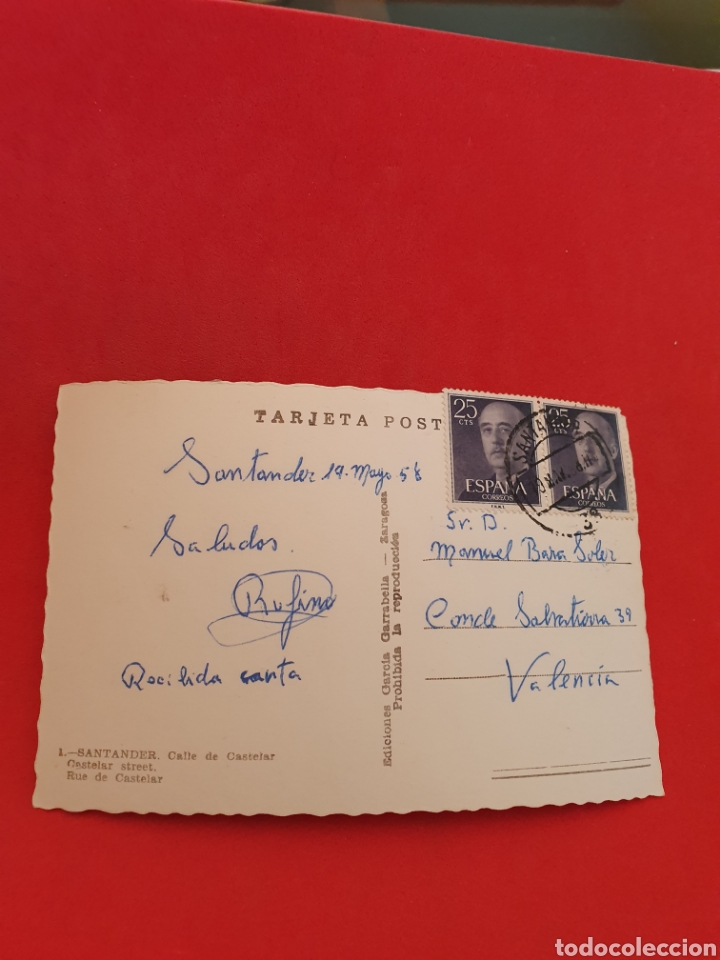 TARJETA POST
Santander 19. Mayo 58
Saludos.
Rufino
Recibida carta
1.—SANTANDER. Calle de Castelar
Castelar street.
Rue de Castelar
Ediciones García Garrabella — Zaragoza
Prohibida la reproducción
25
CTS
ESPAÑA
CORREOS
25
CTS
ESPAÑA
CORREOS
SANTANDER
Sr. D.
Manuel Bara Soler
Conde Salvatierra 39
Valencia
todocoleccion